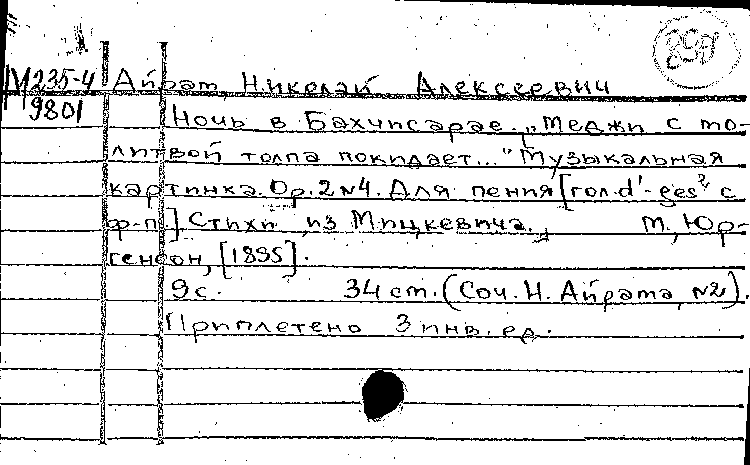 М235-4 Айрат, Николай Алексеевич
9801 Ночь в Бахчисарае. „Меджи с мо-
литвой толпа покидает..." Музыкальная
картинка. Op. 2 №4. Для пения [гол. d'-ges² с
ф-п.] Стихи из Мицкевича. М., Юр-
генсон, [1895].
9 с. 34 cm. (Соч. Н. Айрата, №2).
Приплетено 3 инв. ед.